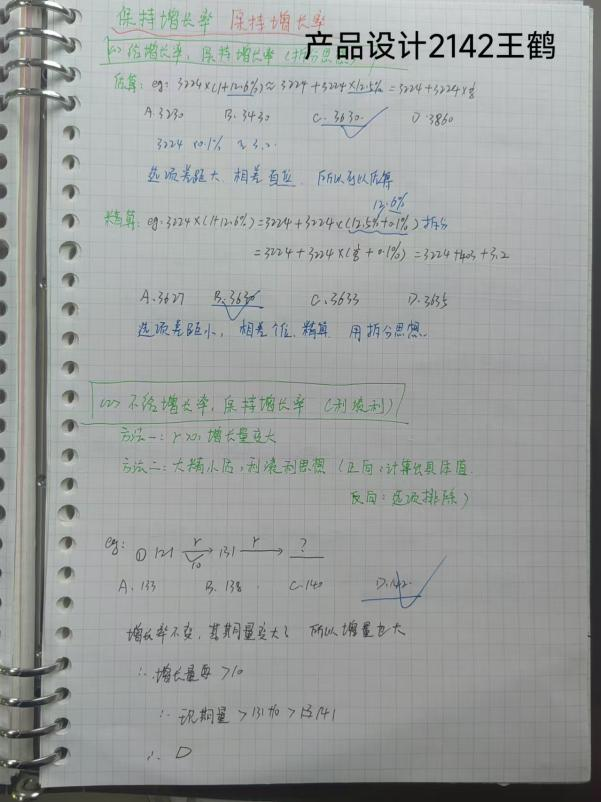 保持增长率 保持增长率
产品设计2142王鹤
(1) 给增长率,保持增长率(拆分思想)
估算: eg: 3224×(1+12.6%)≈3224+3224×12.5%=3224+3224×1/8
A.3230 B.3430 C.3630. D.3860
3224×0.1%≈3.2.
选项差距大,相差百位,所以可以估算
12.6%
精算: eg.3224×(1+12.6%)=3224+3224×(12.5%+0.1%)拆分
=3224+3224×(1/8+0.1%)=3224+403+3.2
A.3627 B.3630 C.3633 D.3635
选项差距小,相差个位.精算.用拆分思想.
(2)不给增长率,保持增长率(利滚利)
方法一:r>0,增长量变大
方法二:大精小估,利滚利思想(正向:计算出具体值.
反向:选项排除)
eg: ①121 r→ 131 r→ ?
10
A.133 B.138. C.140 D.142.
增长率不变,基期量变大 所以增量也大
∴增长量要>10
∴现期量>131+10>141
∴D